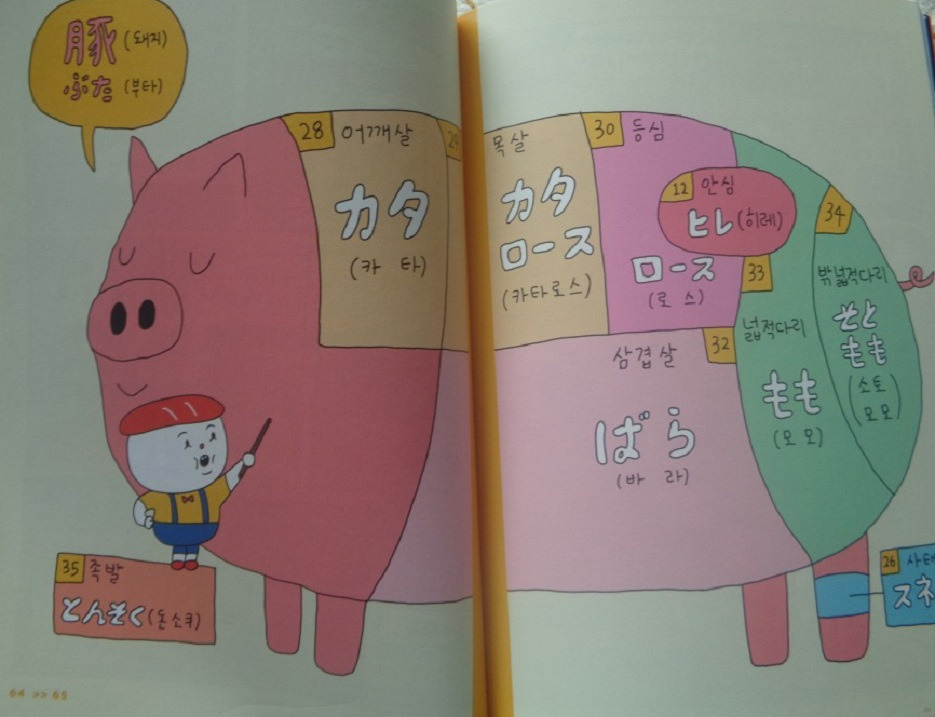 豚 (돼지)
ぶた (부타)
28 어깨살
カタ
(카 타)
29 목살
カタ
ロース
(카타로스)
30 등심
ロース
(로스)
12 안심
ヒレ (히레)
33
넓적다리
もも
(모모)
34
밖넓적다리
そと
もも
(소토
모모)
32
삼겹살
ばら
(바 라)
35 족발
とんそく (돈소쿠)
26 사태
スネ
64 >> 65